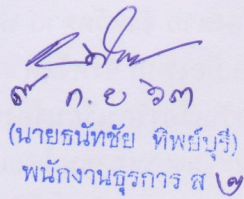 ๙ ก.ย ๖๓
(นายธนัทชัย ทิพย์บุรี)
พนักงานธุรการ ส ๒